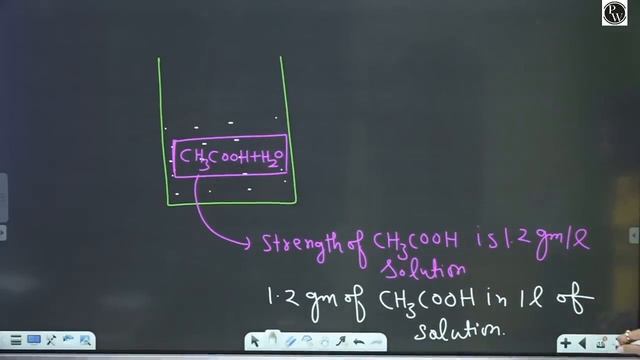 PW
CH₃COOH+H₂O
Strength of CH₃COOH is 1.2 gm/l
solution
1.2 gm of CH₃COOH in 1l of
solution.